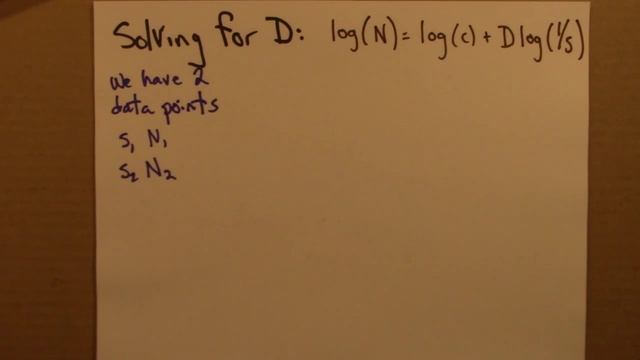 Solving for D: log(N) = log(c) + D log(1/s)
we have 2
data points
s₁ N₁
s₂ N₂